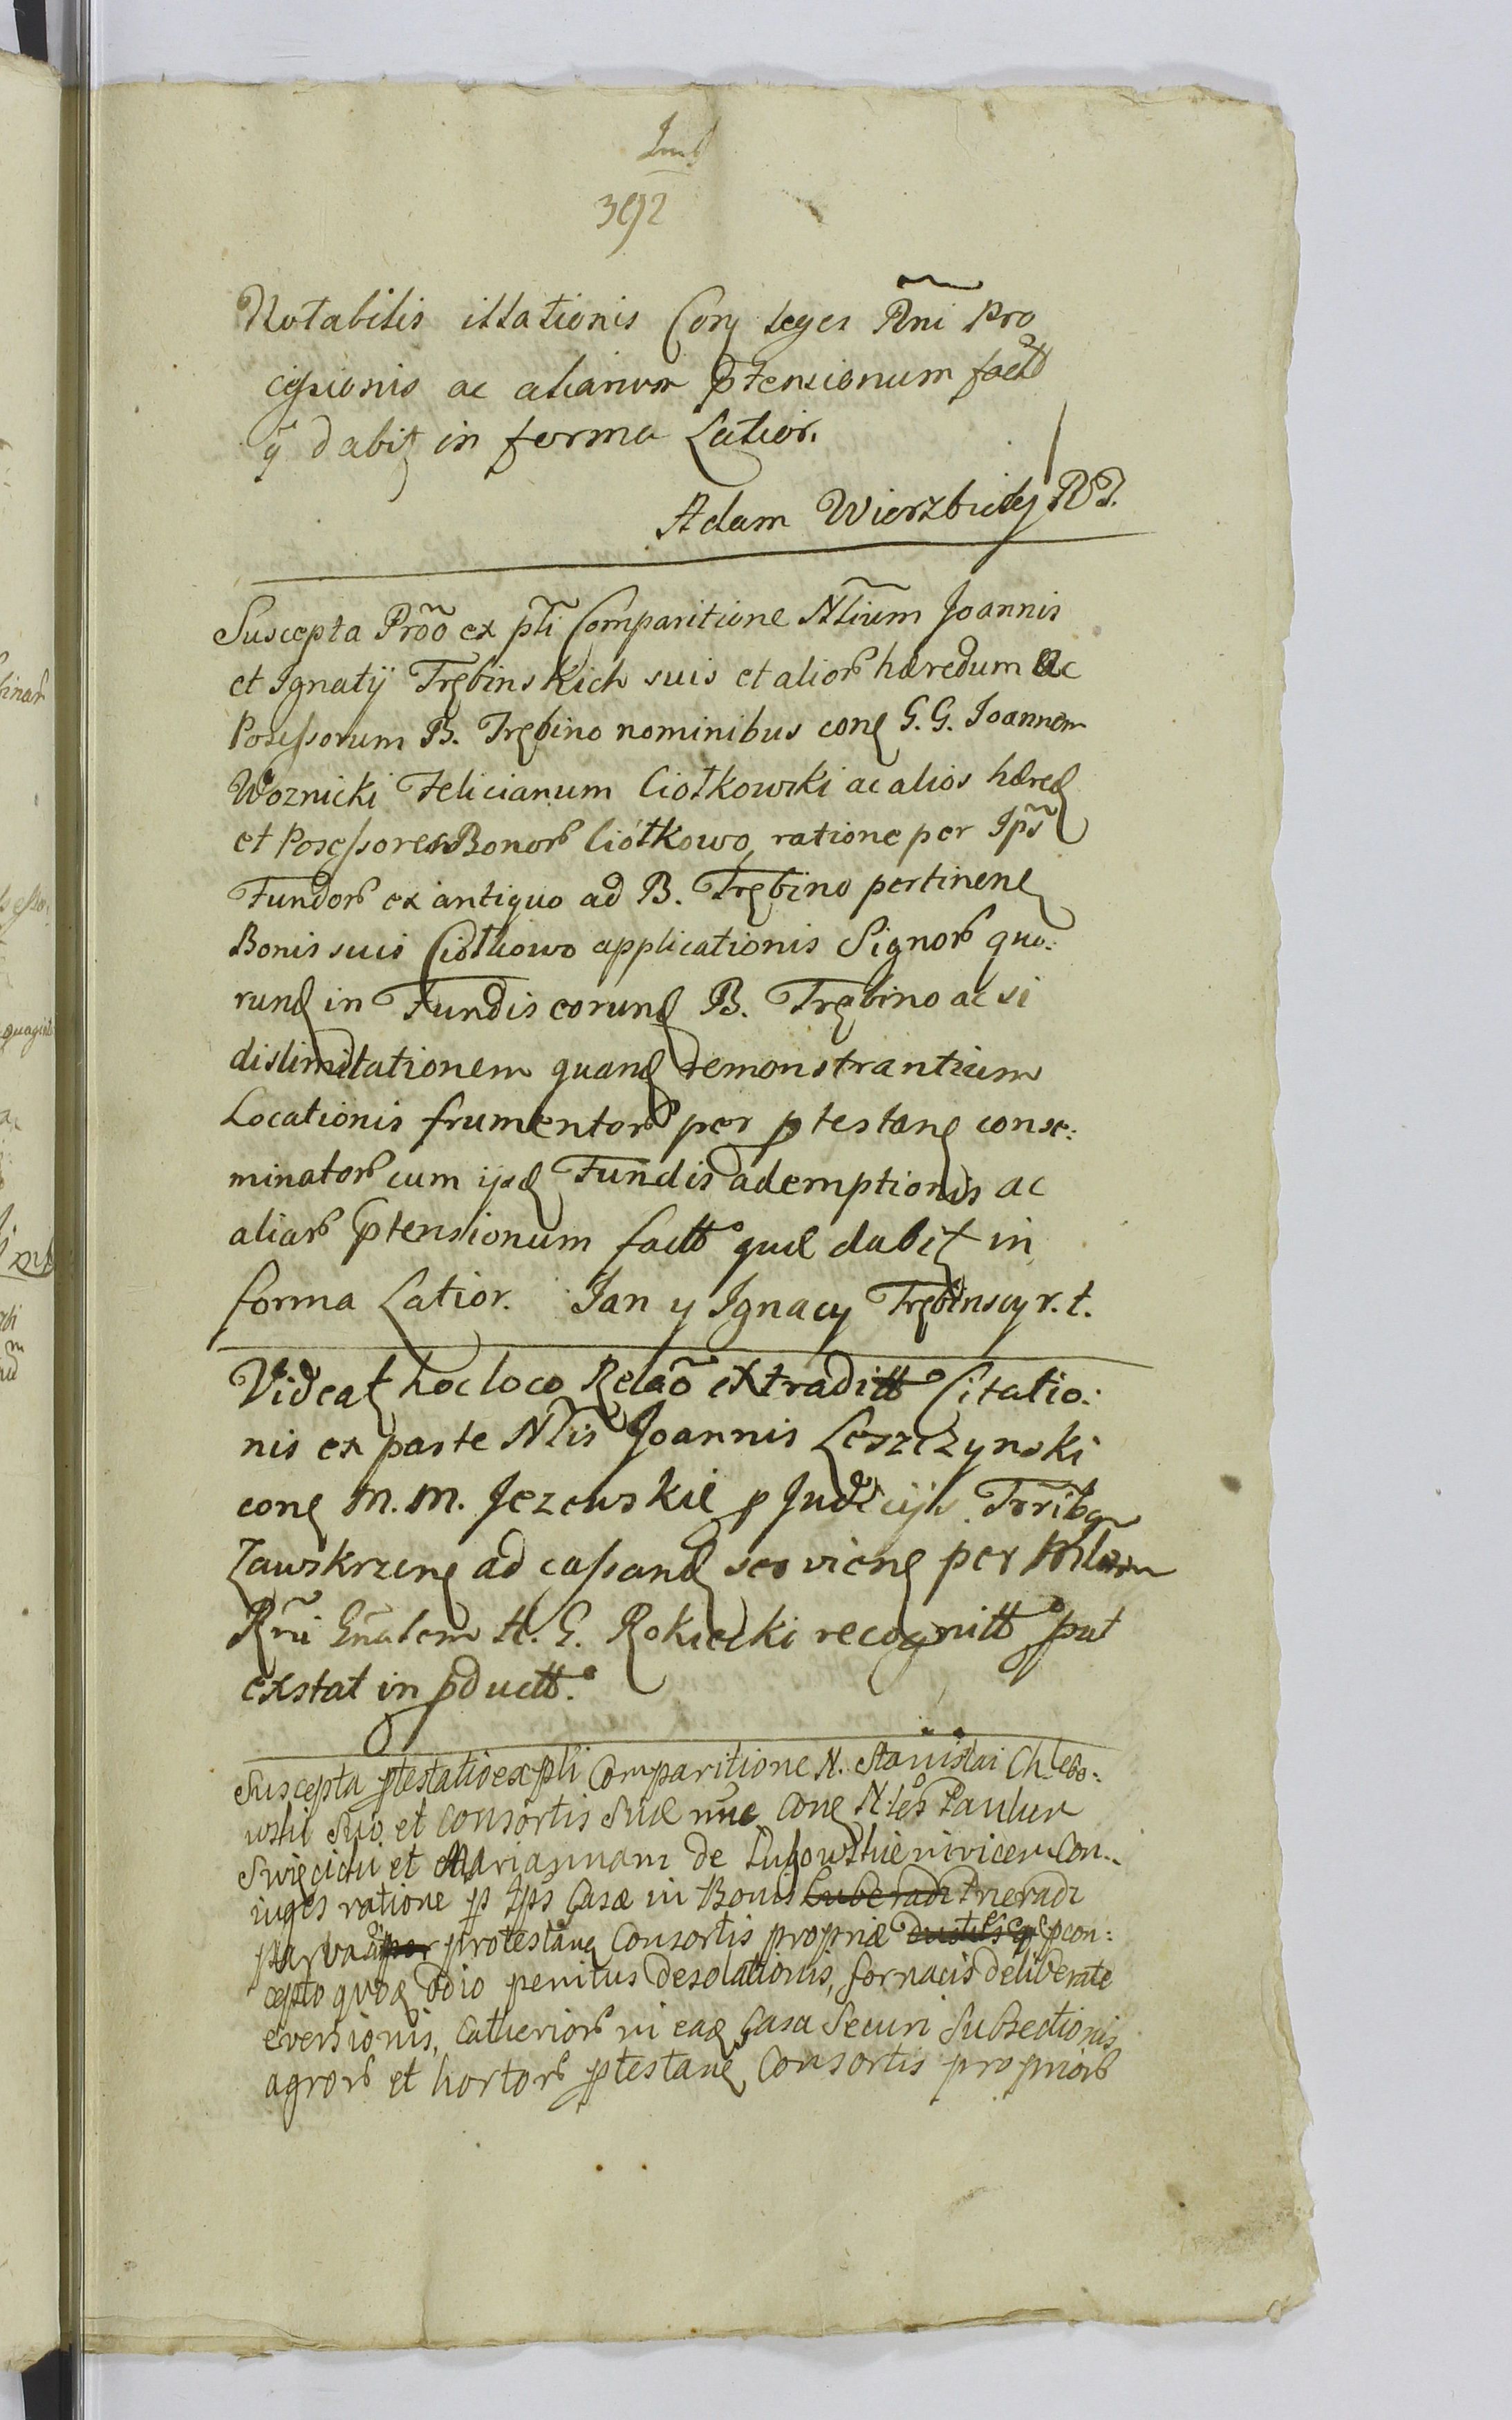 392
Notabilis illationis Conq leges Rni Pro
cessionis ac aliarum ptensionum factt
q dabit in forma Latior.
Adam Wierzbicky
Suscepta Prõo ex pti Comparitione Nlium Joannis
et Ignatij Trębinskich suis et alior hæredum ac
Possessorum B. Trębino nominibus conq G. G. Joannem
Woznicki Felicianum Ciołkowski ac alios hæred
et Possessores Bonor Ciółkowo, ratione per Ips
Fundor ex antiquo ad B. Trębino pertinenq
Bonis suis Ciołkowo applicationis Signor quo:
rund in Fundis eorund B. Trębino ac si
dislimitationem quand demonstrantium
Locationis frumentor per ptestanq conse:
minator cum ijsd Fundis ademptionis ac
aliar ptensionum factt quæ dabit in
forma Latior. Jan y Ignacy Trębinscy r. t.
Videat hoc loco Relaõ extraditt Citatio:
nis ex parte Nlis Joannis Leszczynski
conq M. M. Jezewskie p Judicijs Trribq
Zawskrzenq ad cassand servienq per Mlem
Rni Gnalem H. G. Rokicki recognitt put
exstat in pductt.
Suscepta ptestatio ex pti Comparitione N. Stanislai Chlebo:
wski suo et Consortis suæ nne Conq Nles Paulum
Swięcicki et Mariannam de invicem Con:
iuges ratione p Ips Casæ in Bonis
parva protestanq Consortis propriæ pcon:
cepto quod odio penitus desolationis, fornacis deliberate
eversionis, in ead Casa Securi Subsectionis
agror et hortor ptestanq Consortis proprior